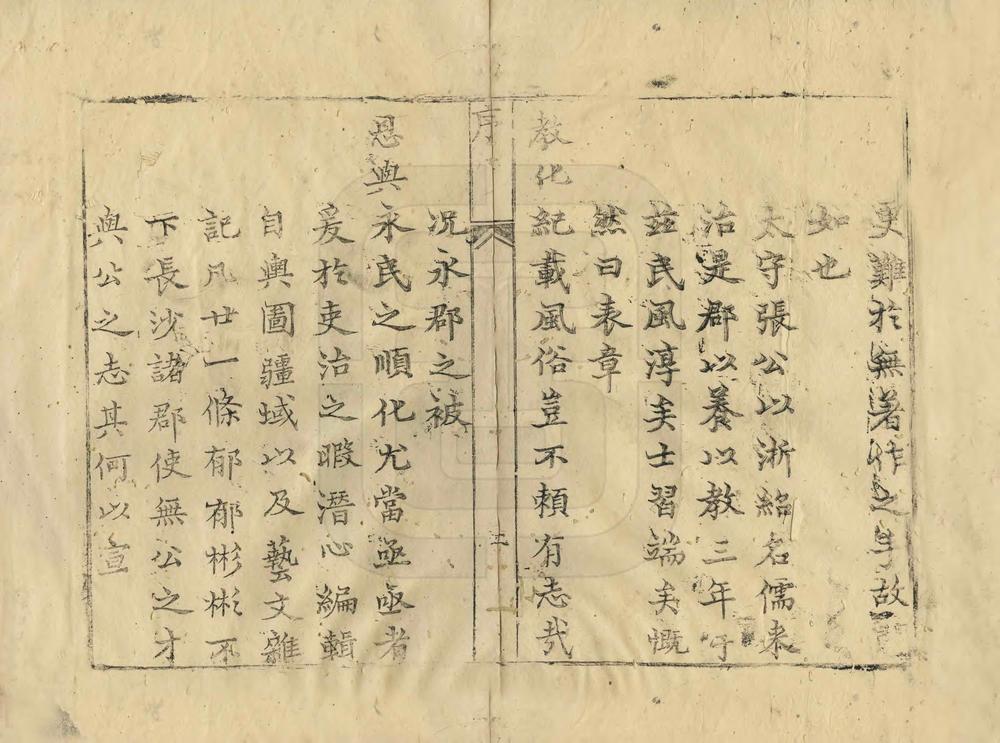 更難於無著作之手故
如也
太守張公以浙紹名儒來
治是郡以養以教三年于
茲民風淳矣士習端矣慨
然曰表章
教化紀載風俗豈不賴有志哉
序
況永郡之被
恩與永民之順化尤當亟亟者
爰於吏治之暇潛心編輯
自輿圖疆域以及藝文雜
記凡廿一條郁郁彬彬不
下長沙諸郡使無公之才
與公之志其何以宣